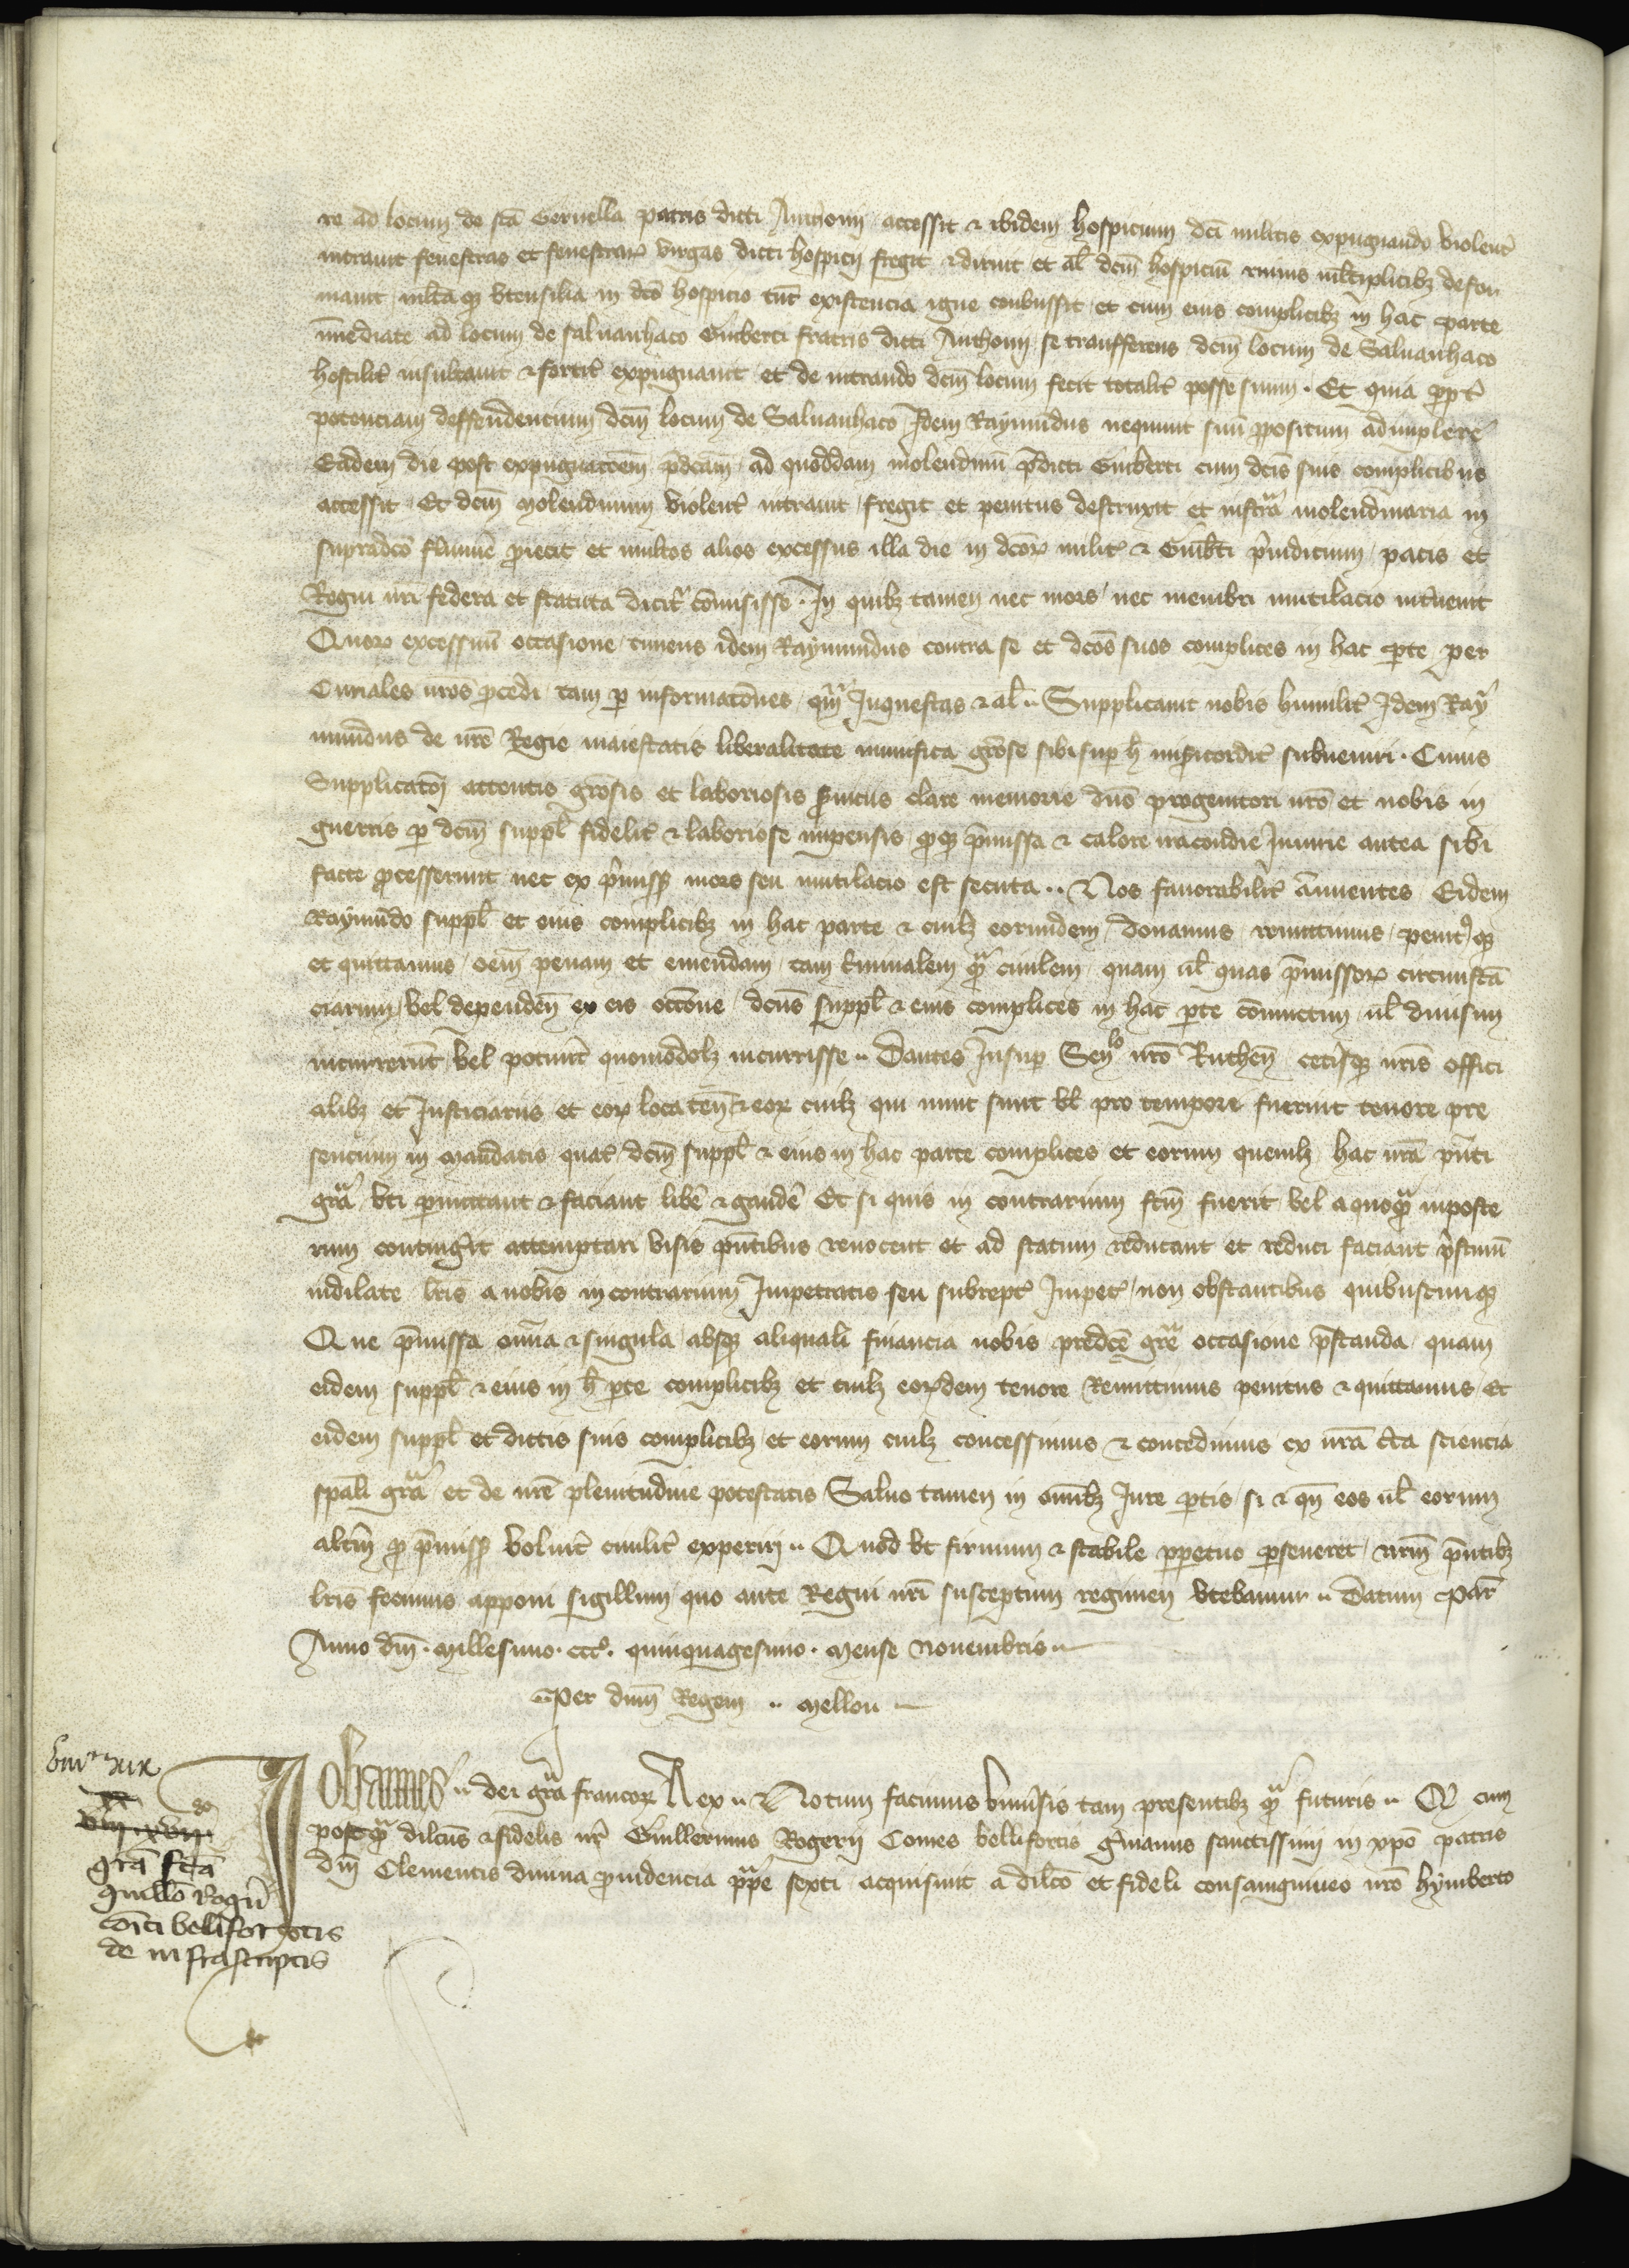 re ad locum de sca Gernella patris dicti Anthonii accessit & ibidem hospicium dci militis expugnando violent
intrauit fenestras et fenestrar virgas dicti hospicii fregit & diruit et al dcm hospiciu ruinis mltiplicibz defor
mauit mltaqz vtensilia in dco hospicio tuc existencia igne conbussit et cum eius complicibz in hac parte
inmediate ad locum de saluanhaco Guiberti fratris dicti Anthonii se transferens dcm locum de Saluanhaco
hostilit insultauit & fortit expugnauit et de intrando dcm locum fecit totalit posse suum . Et quia ppt
potenciam deffendentium dcm locum de Saluanhaco Idem Raymundus nequiuit suu propositum adimplere
Eadem die post expugnacoem pdcam ad quoddam molendinu pdicti Guiberti cum dcis suis complicibus
accessit Et dcm Molendinum violent intrauit fregit et penitus destruxit et instra molendinaria in
supradco flumie proiecit et multos alios excessus illa die in dcor milit & Guibti preiudicium pacis et
Regni nri federa et statuta dicit comisisse . In quibz tamen nec mors nec membri mutilacio interuenit
Quor excessuu occasione timens idem Raymundus contra se et dcos suos complices in hac pte per
Curiales nros procedi tam p informacoes qm Inquestas & al .. Supplicauit nobis humilit Idem Ray
mundus de nre Regie maiestatis liberalitate munifica grose sibi sup h misicordit subueniri . Cuius
Supplicacoi attentis grosis et laboriosis seruiciis clare memorie dno progenitori nro et nobis in
guerris p dcm suppl fidelit & laboriose impensis proqz pmissa & calore iracondie Iniurie antea sibi
facte processerunt nec ex pmiss mors seu mutilacio est secuta .. Nos fauorabilit annuentes Eidem
Raymundo suppl et eius complicibz in hac parte & cuilz eorumdem donamus remittimus penitqz
et quittamus oem penam et emendam tam criminalem qua ciuilem quam ul quas pmissor circunsta
ciarum vel dependen ex eis occone dcus suppl & eius complices in hac pte coniunctim ul diuisim
incurrerunt vel potuint quomodolz incurrisse .. Dantes Insup Senlo nro Ruthen cetisqz nris offici
alibz et Justiciariis et eor loca ten & eor cuilz qui nunc sunt vl pro tempore fuerint tenore pre
sencium in mandatis quat dcm suppl & eius in hac parte complices et eorum quemlz hac nra pnti
gra vti pmittant & faciant libe & gaude Et si quis in contrarium fcm fuerit vel a quoqua inposte
rum contingit attemptari visis pntibus reuocent et ad statum reducant et reduci faciant pstinu
indilate lris a nobis in contrarium Impetratis seu subrept Impet non obstantibus quibuscumqz
Que pmissa omia & singula absqz aliquali financia nobis predce gre occasione pstanda quam
eidem suppl & eius in h pte complicibz et cuilz eordem tenore Remittimus penitus & quittamus Et
eidem suppl et dictis suis complicibz et eorum cuilz concessimus & concedimus ex nra cta sciencia
spali gra et de nre plenitudine potestatis Saluo tamen in omibz Jure ptis si & qn eos ul eorum
altm pro pmiss voluit ciuilit experiri .. Quod vt firmum & stabile ppetuo pseueret nrm pntibz
lris fecimus apponi sigillum quo ante Regni nri susceptum regimen vtebamur .. Datum Par
Anno dni . Millesimo . ccco . quinquagesimo . Mense Nouembris ..
Per dnm Regem .. Mellou
Johannes .. dei gra francor Rex .. Notum facimus vniusis tam presentibz qua futuris .. Qd cum
postqua dilcus & fidelis nr Guillermus Rogerii Comes bellifortis gmanus sanctissimi in xpo patris
dni Clementis diuina prouidencia ppe sexti acquisiuit a dilco et fideli consanguineo nro Hymberto
gra fca
guillo Rogii
coiti bellifortis
de infrascriptis